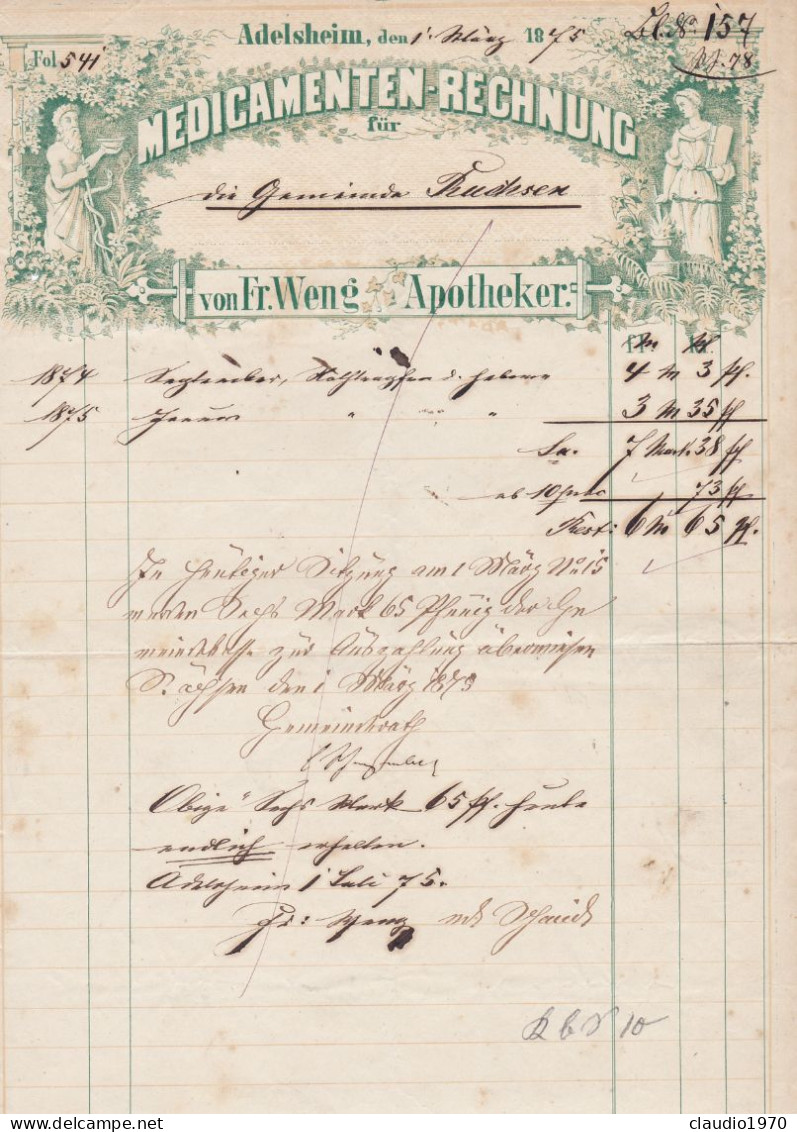 Adelsheim, den 1. März 1875
Bl. No 157
Fol 541
78
MEDICAMENTEN-RECHNUNG
für
die Gemeinde Ruchsen
von Fr. Weng Apotheker.
1874 September, 4 M 3 pf.
1875 Januar " " " 3 M 35 pf
Sa. 7 Mark 38 pf
ab 10 proc 73 pf
Rest: 6 M 65 pf.
In heutiger Sitzung am 1 März No 15
werden Sechs Mark 65 Pfenig der Ge
meindekasse zur Auszahlung überwiesen
den 1 März 1875
Gemeinderath
Obige Sechs Mark 65 pf. heute
endlich erhalten.
Adelsheim 1 Juli 75.
Fr: Weng
10
delcampe.net
claudio1970